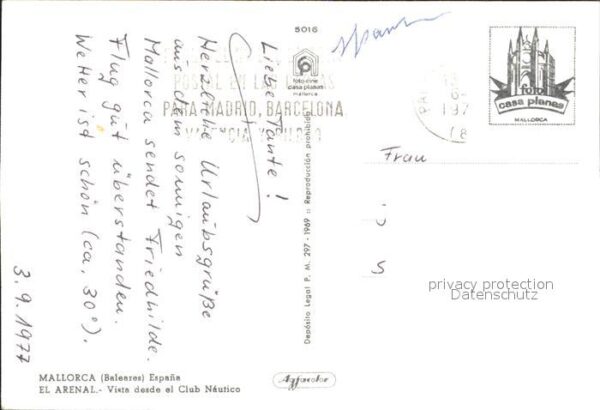 5016
foto-cine
casa planas
mallorca
foto
casa planas
MALLORCA
POSTAL EN LAS
PARA MADRID, BARCELONA
197
Liebe Tante!
Herzliche Urlaubsgrüße
aus dem sonnigen
Mallorca sendet Friedhilde.
Flug gut überstanden.
Wetter ist schön (ca. 30°).
3.9.1977
Frau
Depósito Legal P. M. 297 - 1969 :: Reproducción prohibida
privacy protection
Datenschutz
MALLORCA (Baleares) España
EL ARENAL.- Vista desde el Club Náutico
Agfacolor